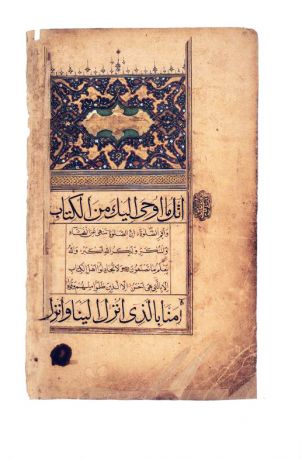 اتل ما اوحی الیك من الکتاب
واقم الصلوة ان الصلوة تنهی عن الفحشاء
والمنکر ولذکر الله اکبر والله
یعلم ما تصنعون ولا تجادلوا اهل الکتاب
الا بالتی هی احسن الا الذین ظلموا منهم وقولوا
آمنا بالذی انزل الینا وانزل